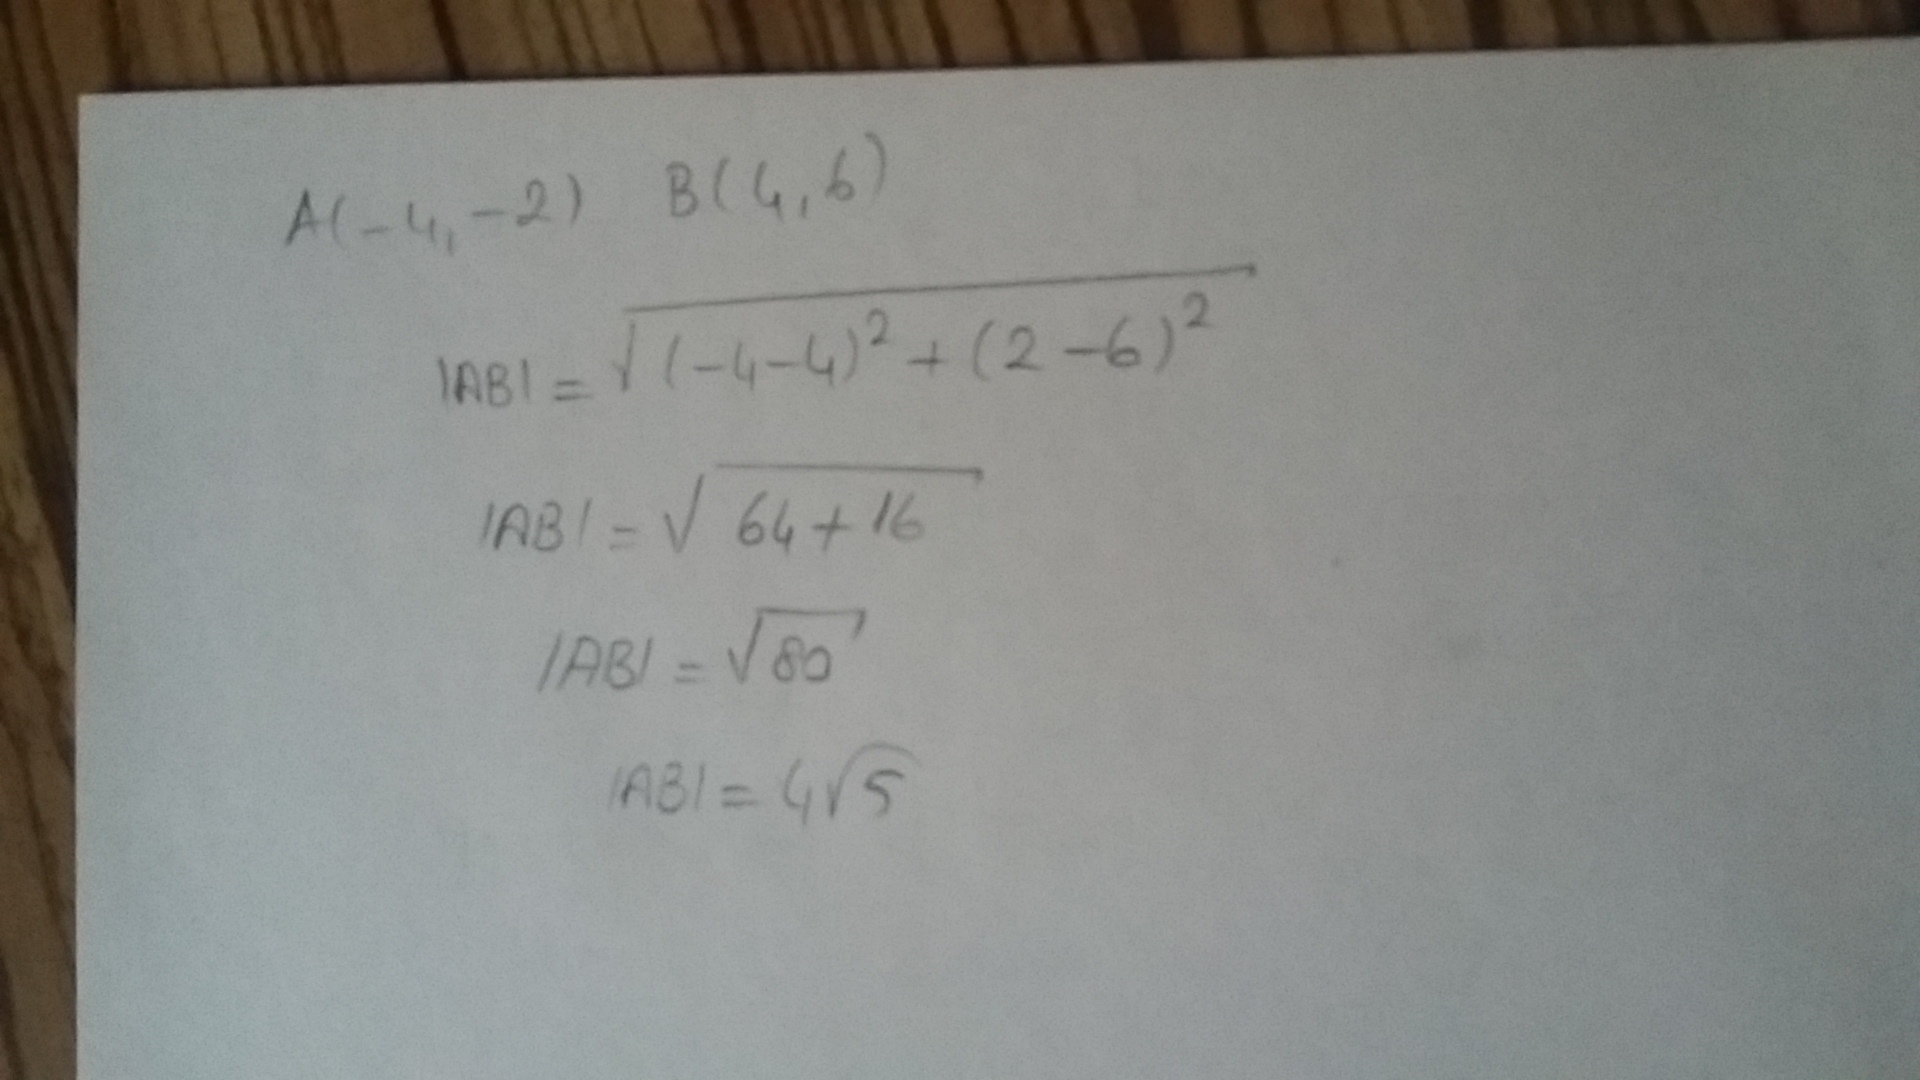 A(-4,-2) B(4,6)
|AB| = √(-4-4)² + (2-6)²
|AB| = √64+16
|AB| = √80
|AB| = 4√5